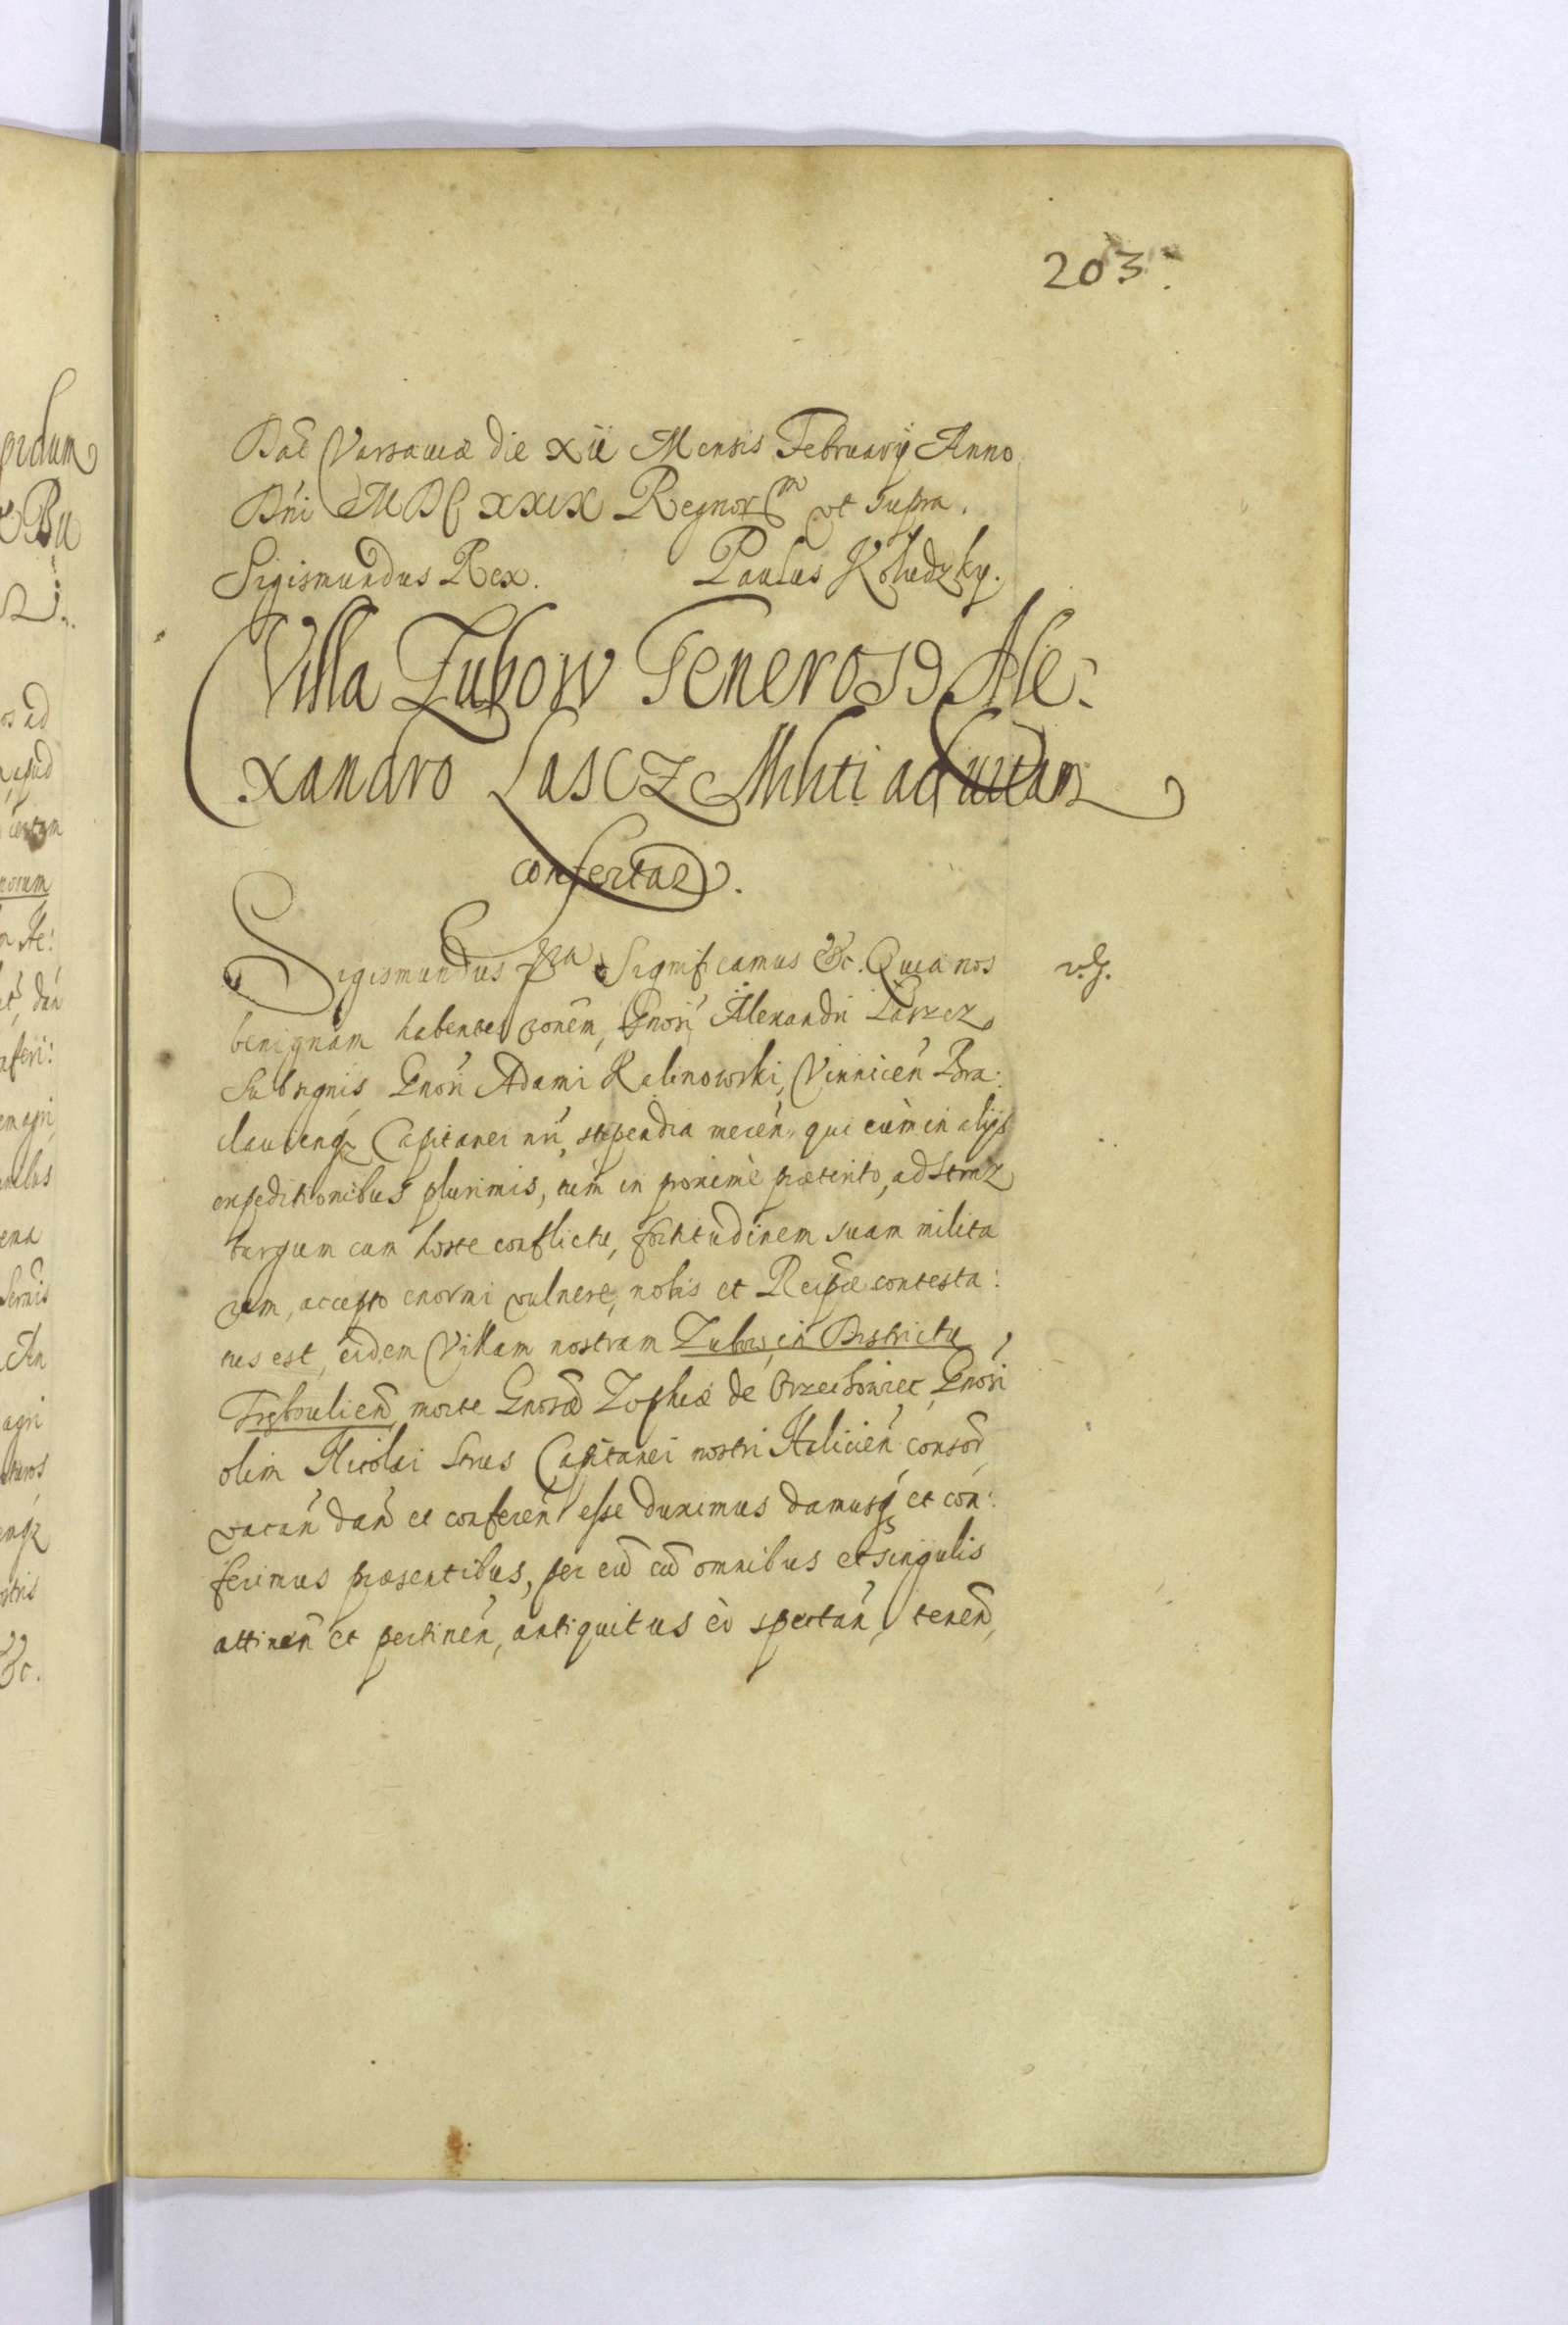 203.
Dat̃ Varsauiæ die XII Mensis Februarij Anno
Dńi MDCXXIX Regnorm vt supra.
Sigismundus Rex. Paulus Koludzky.
Villa Zubow Generoso Ale:
xandro Lascz Militi ad vitam
confertur.
Sigismundus Significamus &c. Quia nos v.g.
benignam habentes rõnem, Gnosi Alexandri Laszcz
sub signis Gnosi Adami Kalinowski, Vinnicen̄ Bra:
clauienq Capitanei nr̃i, stipendia meren̄, qui cùm in alijs
expeditionibus plurimis, tùm in proximè præterito, ad Stras
burgum cum hoste conflictu, fortitudinem suam milita
rem, accepto enormi vulnere, nobis et Reipcæ contesta:
tus est, eidem Villam nostram Zubow, in Districtu
Trębowlien̄ morte Gnosæ Zophiæ de Orzechowiec, Gnosi
olim Nicolai Strus Capitanei nostri Halicien̄ consor̃,
vacan̄ dan̄ et conferen̄ esse duximus damusq et con:
ferimus præsentibus, per eũ cũ omnibus et singulis
attinen̄ et pertinen̄, antiquitus eò spectan̄, tenen̄,